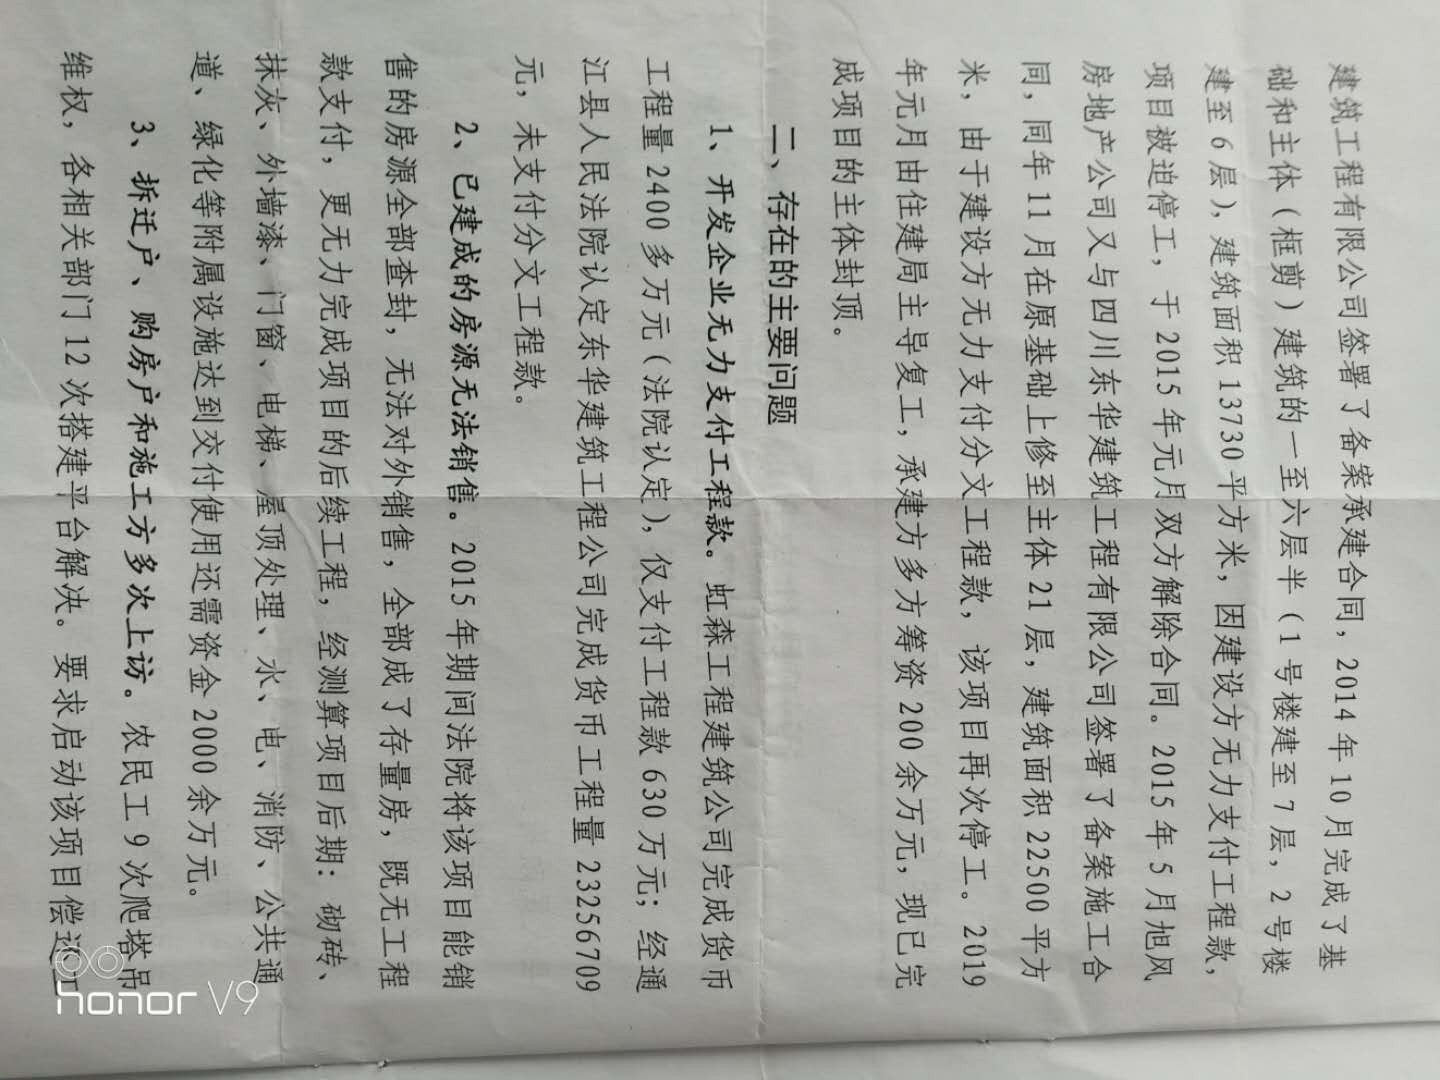 建筑工程有限公司签署了备案承建合同，2014年10月完成了基
础和主体（框剪）建筑的一至六层半（1号楼建至7层，2号楼
建至6层），建筑面积13730平方米，因建设方无力支付工程款，
项目被迫停工，于2015年元月双方解除合同。2015年5月旭风
房地产公司又与四川东华建筑工程有限公司签署了备案施工合
同，同年11月在原基础上修至主体21层，建筑面积22500平方
米，由于建设方无力支付分文工程款，该项目再次停工。2019
年元月由住建局主导复工，承建方多方筹资200余万元，现已完
成项目的主体封顶。
二、存在的主要问题
1、开发企业无力支付工程款。虹森工程建筑公司完成货币
工程量2400多万元（法院认定），仅支付工程款630万元；经通
江县人民法院认定东华建筑工程公司完成货币工程量23256709
元，未支付分文工程款。
2、已建成的房源无法销售。2015年期间法院将该项目能销
售的房源全部查封，无法对外销售，全部成了存量房，既无工程
款支付，更无力完成项目的后续工程，经测算项目后期：砌砖、
抹灰、外墙漆、门窗、电梯、屋顶处理、水、电、消防、公共通
道、绿化等附属设施达到交付使用还需资金2000余万元。
3、拆迁户、购房户和施工方多次上访。农民工9次爬塔吊
维权，各相关部门12次搭建平台解决。要求启动该项目偿还工
honor V9